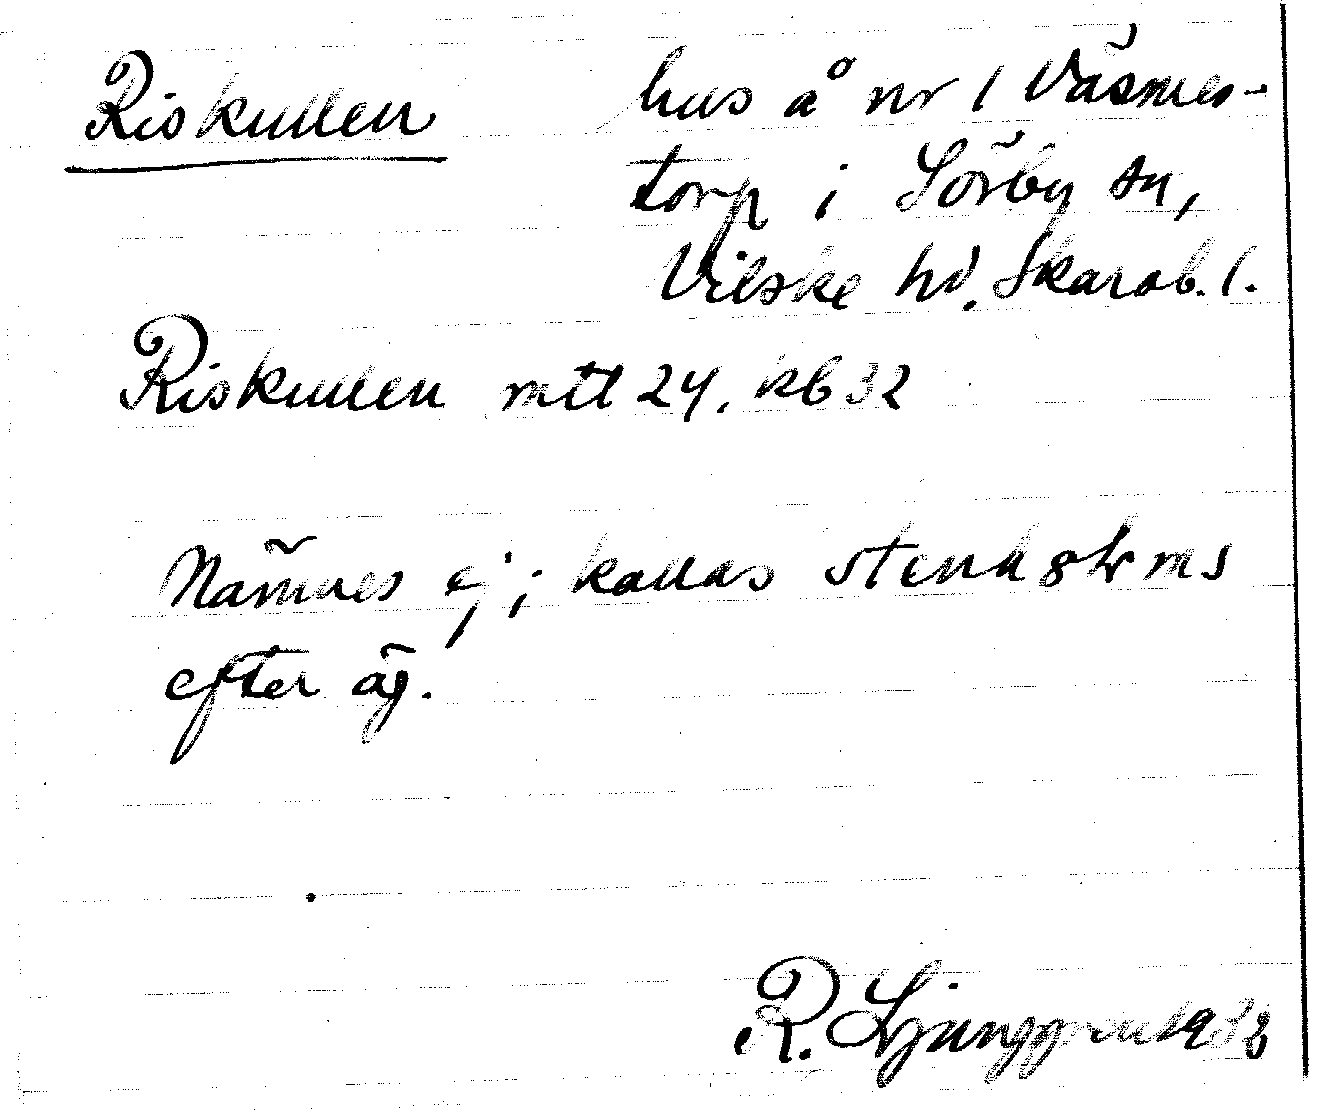 Riskullen hus å nr 1 Väsmes-
torp i Sörby sn,
Vilske hd. Skarab. l.
Riskullen mtl 24. kb 32
Nämnes ej; kallas stenholms
efter äg.
R. Ljunggren 1932